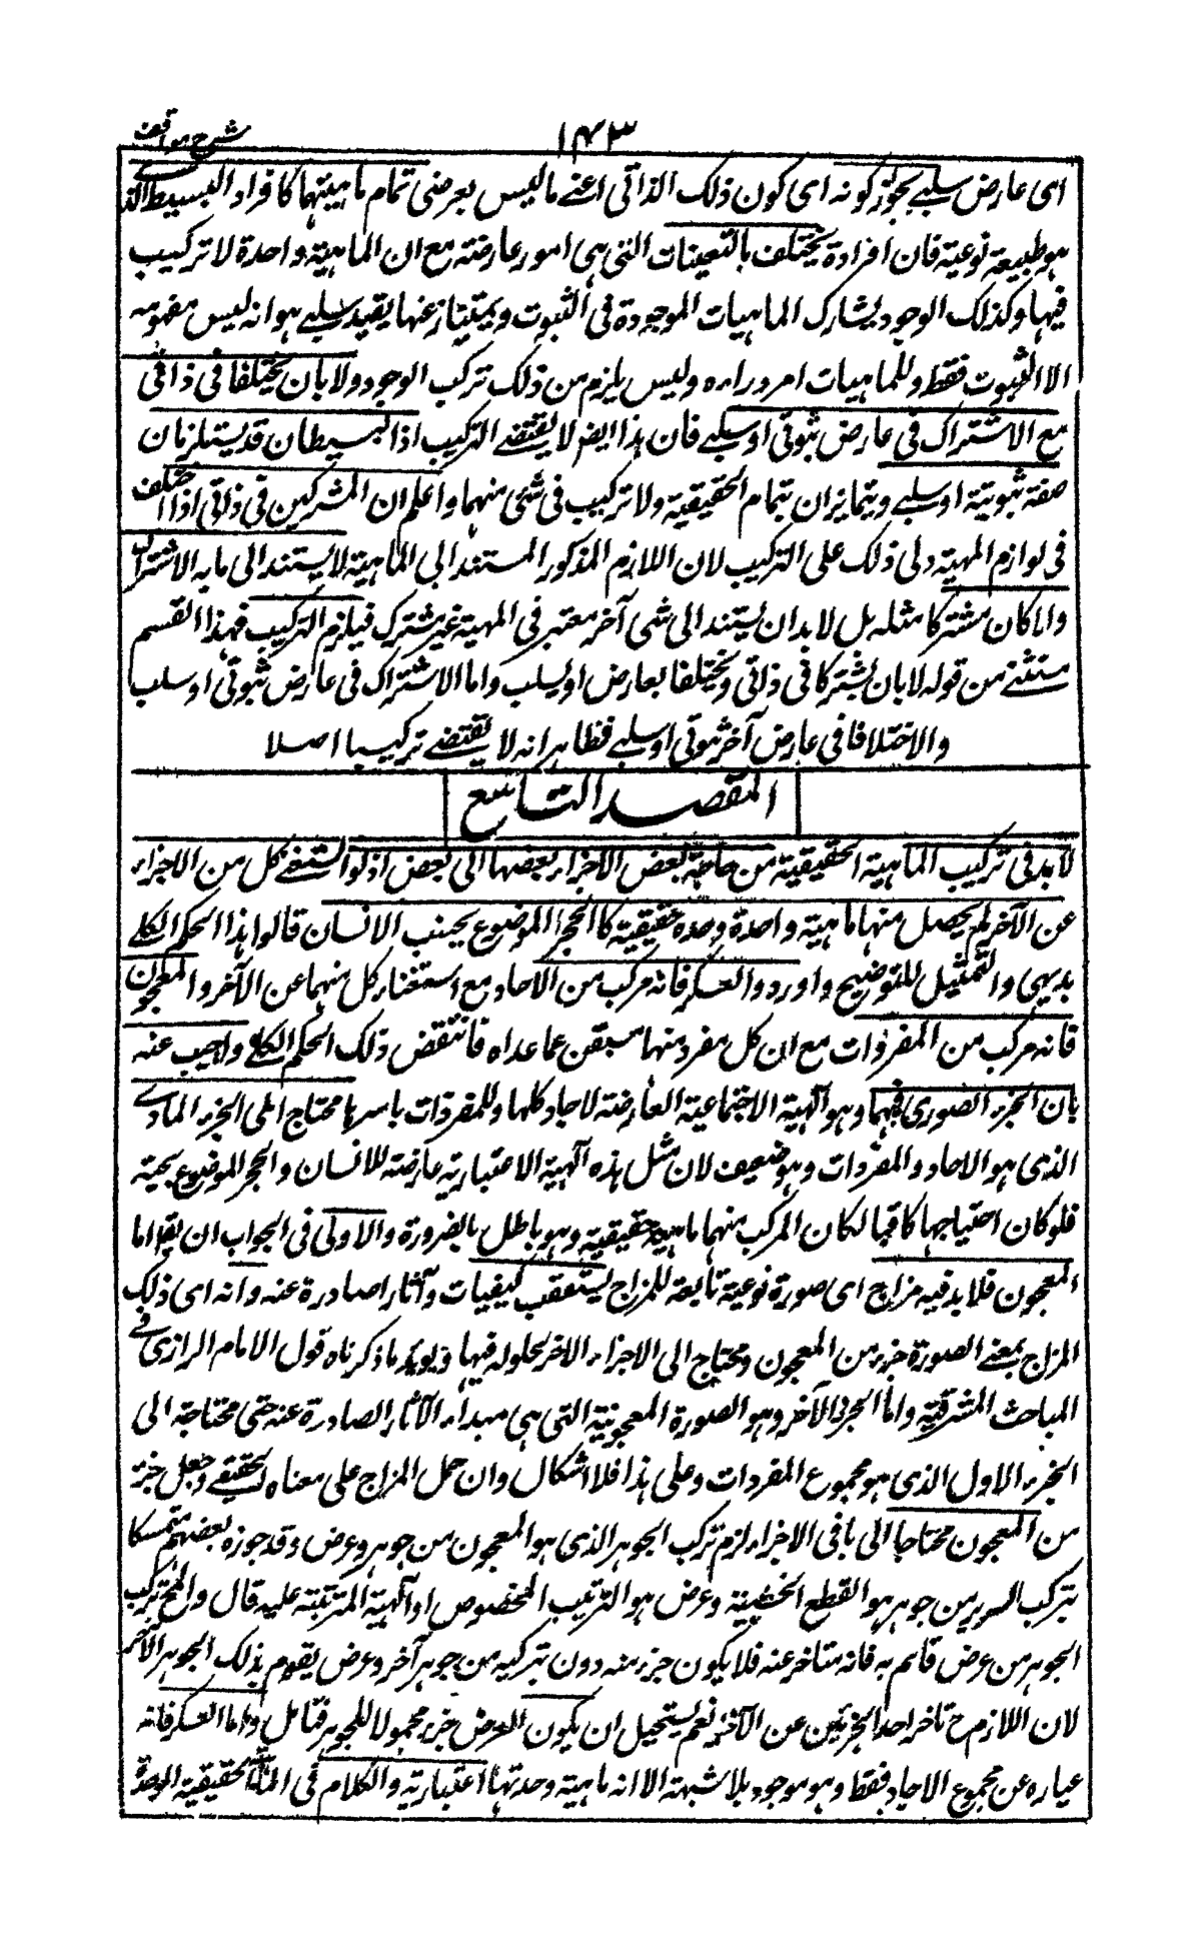 شرح مواقف
١٤٣
اى عارض سلبے يجوز كونه اى كون ذلك الذاتى اعنے ماليس بعرضى تمام ماهيتهما كافراد البسيط الذى
هو طبيعة نوعية فان افراده يختلف بالتعينات التى هى امور عارضته مع ان الماهية واحدة لا تركيب
فيها وكذلك الوجود يشارك الماهيات الموجودة فى الثبوت ويمتاز عنها بقيد سلبے هو انه ليس مفهومه
الا الثبوت فقط وللماهيات امر وراءه وليس يلزم من ذلك تركب الوجود ولا بان يختلفا فى ذاتى
مع الاشتراك فى عارض ثبوتى او سلبے فان هذا ايضا لا يقتضے التركيب اذ البسيطان قد يستلزمان
صفة ثبوتية او سلبے ويتمايزان بتمام الحقيقية ولا تركيب فى شئ منهما واعلم ان المشتركين فى ذاتى اذا اختلف
فى لوازم المهية دلى ذلك على التركيب لان اللازم المذكور المستند الى الماهية لا يستند الى ما به الاشتراك
والا كان مشتركا مثله بل لابد ان يستند الى شئ آخر معتبر فى المهية غير مشترك فيلزم التركيب فهذا القسم
مستثنے من قوله لا بان يشتركا فى ذاتى ويختلفا بعارض او يسلب واما الاشتراك فى عارض ثبوتى او سلب
والاختلافا فى عارض آخر ثبوتى او سلبے فظاهر انه لا يقتضے تركيبا اصلا
المقصد التاسع
لابد فى تركيب الماهية الحقيقية من حاجة بعض الاجزاء بعضها الى بعض اذ لو استغنے كل من الاجزاء
عن الآخر لم يحصل منها ماهية واحدة وحده حقيقية كالحجر الموضوع بجنب الانسان قالوا هذا الحكم الكلے
بديهى والتمثيل للتوضيح واورد والعسكر فانه مركب من الاحاد مع استغناء كل منهما عن الآخر والمعجون
فانه مركب من المفردات مع ان كل مفرد منها مستغن عما عداه فانتقض ذلك الحكم الكلے واجيب عنه
بان الجزء الصورى فيهما وهو الهيئة الاجتماعية العارضته لاحاد كلها وللمفردات باسرها محتاج الى الجزء المادے
الذى هو الاحاد والمفردات وهو ضعيف لان مثل هذه الهيئة الاعتبارية عارضته للانسان والحجر الموضوع بجنبه
فلو كان احتياجها كافيا لكان المركب منهما ماهية حقيقية وهو باطل بالضرورة والاولى فى الجواب ان يقال اما
المعجون فلا بد فيه مزاج اى صورة نوعية تابعة للمزاج يستعقب كيفيات وآثار اصادرة عنه وانه اى ذلك
المزاج بمعنے الصورة جزء من المعجون ومحتاج الى الاجزاء الاخر بحلوله فيها ويؤيد ما ذكرناه قول الامام الرازى فے
المباحث المشرقية واما الجزء الآخر وهو الصورة المعجونية التى هى مبداء الآثار الصادرة عنه حتى محتاجة الى
الجزء الاول الذى هو مجموع المفردات وعلى هذا فلا اشكال وان حمل المزاج على معناه الحقيقے وجعل جزء
من المعجون محتاجا الى باقى الاجزاء لزم تركب الجوهر الذى هو المعجون من جوهر وعرض وقد جوزه بعضهم متمسكا
بتركب السرير من جوهر هو القطع الخشبية وعرض هو الترتيب المخصوص او الهيئة المترتبة عليه قال والمح تركب
الجوهر من عرض قائم به فانه متاخر عنه فلا يكون جزء منه دون تركبه من جوهر آخر وعرض يقوم بذلك الجوهر الآخر
لان اللازم ح تاخر احد الجزئين عن الآخر نعم يستحيل ان يكون العرض جزء محمولا للجوهر فتامل واما العسكر فانه
عباره عن مجموع الاحاد فقط وهو موجود بلا شبهة الا انه ماهية وحدتها اعتبارية والكلام فى الماهية الحقيقية الوحدة